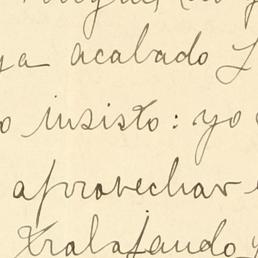 ya acabado y
insisto: yo
aprovechar
trabajando y